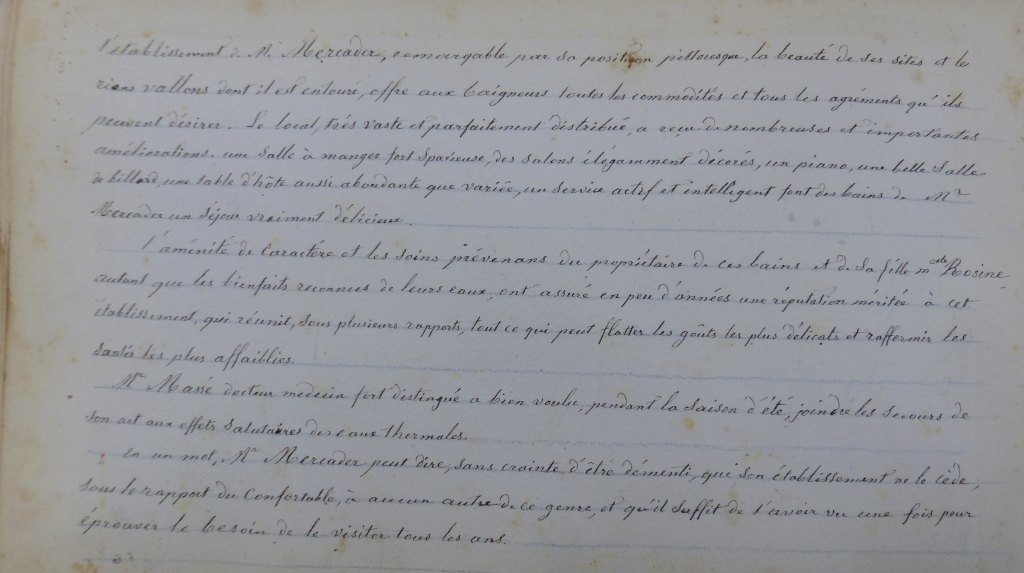 l'établissement de Mr Mercader, remarquable par sa position pittoresque, la beauté de ses sites et le
riens vallons dont il est entouré, offre aux baigneurs toutes les commodités et tous les agréments qu'ils
peuvent désirer. Le local, très vaste et parfaitement distribué, a reçu de nombreuses et importantes
améliorations. une salle à manger fort spacieuse, des salons élégamment décorés, un piano, une belle salle
de billard, une table d'hôte aussi abondante que variée, un service actif et intelligent font des bains de Mr
Mercader un séjour vraiment délicieux.
l'aménité de caractère et les soins prévenans du propriétaire de ces bains et de sa fille melle Rosine,
autant que les bienfaits reconnus de leurs eaux, ont assuré en peu d'années une réputation méritée à cet
établissement, qui réunit, sous plusieurs rapports, tout ce qui peut flatter les goûts les plus délicats et raffermir les
santés les plus affaiblies.
Mr Massé docteur medecin fort distingué a bien voulu, pendant la saison d'été, joindre les secours de
son art aux effets salutaires des eaux thermales.
En un mot, Mr Mercader peut dire, sans crainte d'être démenti, que son établissement ne le cède,
sous le rapport du Confortable, à aucun autre de ce genre, et qu'il suffit de l'avoir vu une fois pour
éprouver le besoin de le visiter tous les ans.